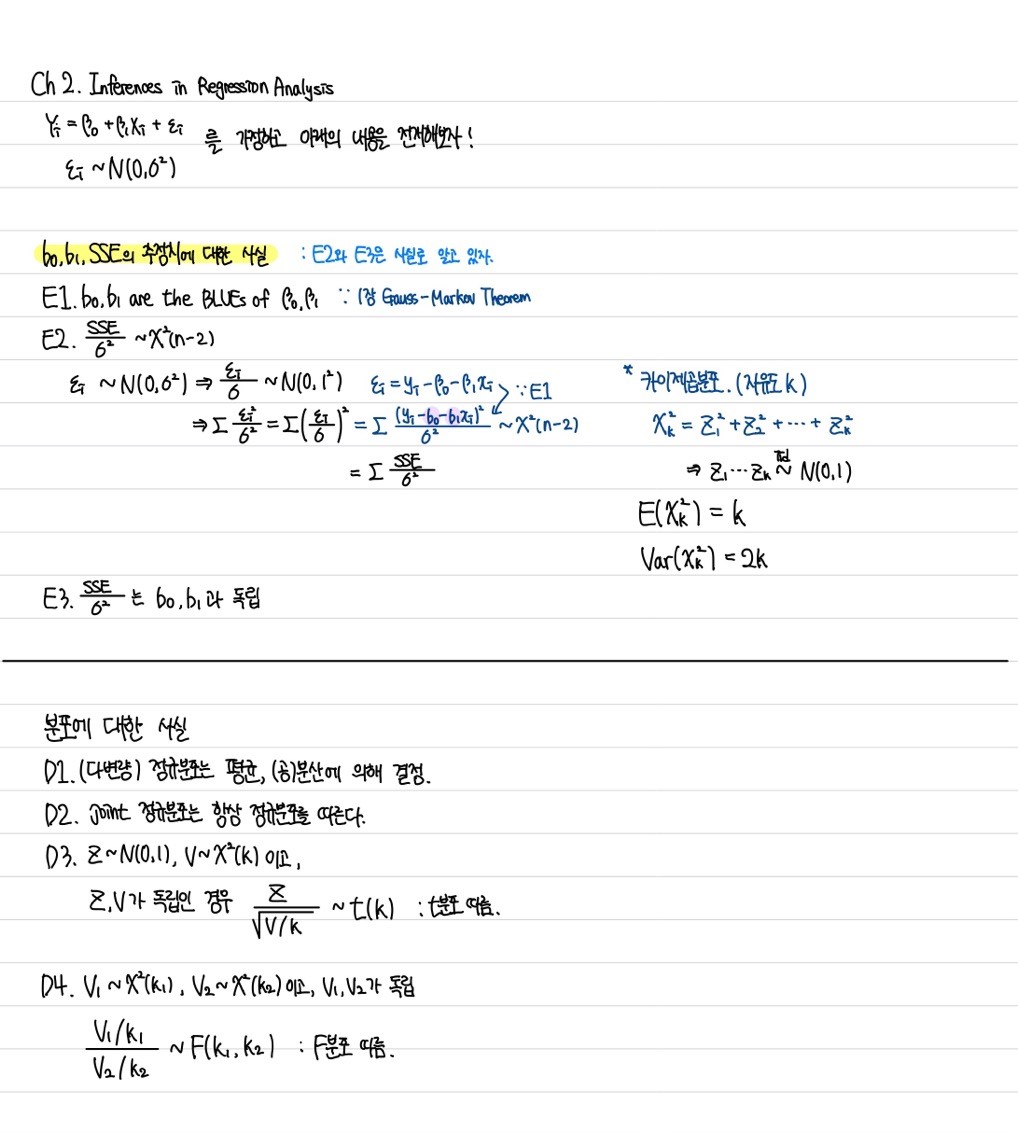 Ch 2. Inferences in Regression Analysis
Yᵢ = β₀ + β₁Xᵢ + εᵢ 를 가정하고 아래의 내용을 전개해보자!
εᵢ ~ N(0, σ²)
b₀, b₁, SSE의 추정치에 대한 사실 : E2와 E3은 사실로 알고 있자.
E1. b₀, b₁ are the BLUEs of β₀, β₁ ∵ 1장 Gauss-Markov Theorem
E2. SSE/σ² ~ χ²(n-2)
εᵢ ~ N(0, σ²) ⇒ εᵢ/σ ~ N(0, 1²) εᵢ = yᵢ - β₀ - β₁xᵢ ∵ E1
⇒ Σ εᵢ²/σ² = Σ(εᵢ/σ)² = Σ (yᵢ - b₀ - b₁xᵢ)²/σ² ~ χ²(n-2)
= Σ SSE/σ²
* 카이제곱분포. (자유도 k)
χ²ₖ = Z₁² + Z₂² + ··· + Zₖ²
⇒ Z₁ ··· Zₖ iid ~ N(0,1)
E(χ²ₖ) = k
Var(χ²ₖ) = 2k
E3. SSE/σ² 는 b₀, b₁과 독립
분포에 대한 사실
D1. (다변량) 정규분포는 평균, (공)분산에 의해 결정.
D2. joint 정규분포는 항상 정규분포를 따른다.
D3. Z ~ N(0,1), V ~ χ²(k) 이고,
Z, V가 독립인 경우 Z/√(V/k) ~ t(k) : t분포 따름.
D4. V₁ ~ χ²(k₁), V₂ ~ χ²(k₂) 이고, V₁, V₂가 독립
(V₁/k₁)/(V₂/k₂) ~ F(k₁, k₂) : F분포 따름.